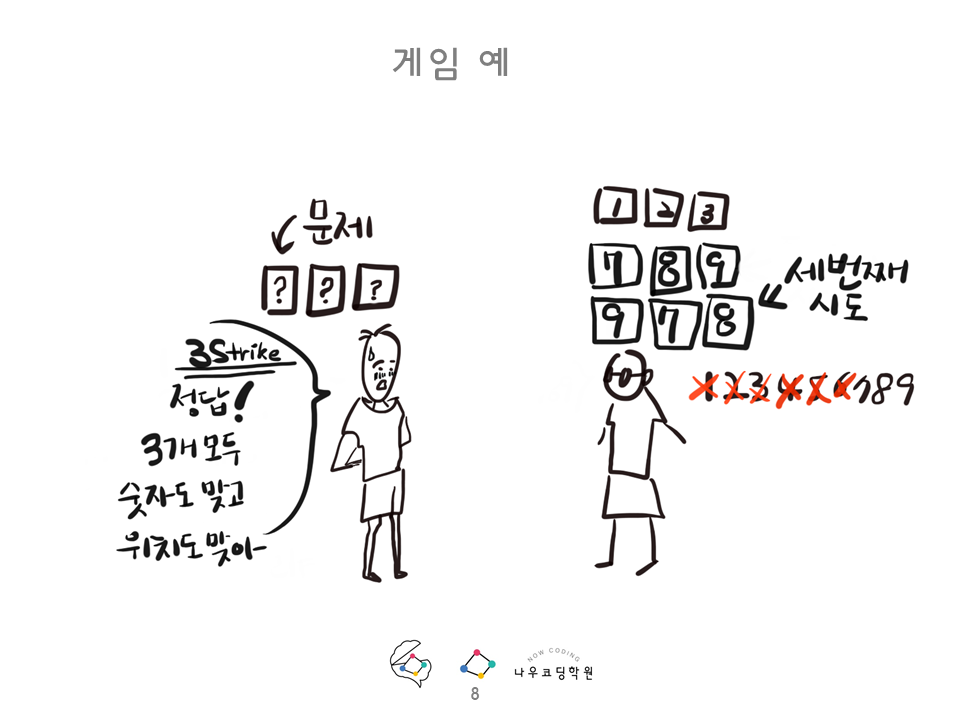 게임 예
문제
? ? ?
3Strike
정답!
3개 모두
숫자도 맞고
위치도 맞아
1 2 3
7 8 9
9 7 8
세번째
시도
123456789
NOW CODING
나우코딩학원
8